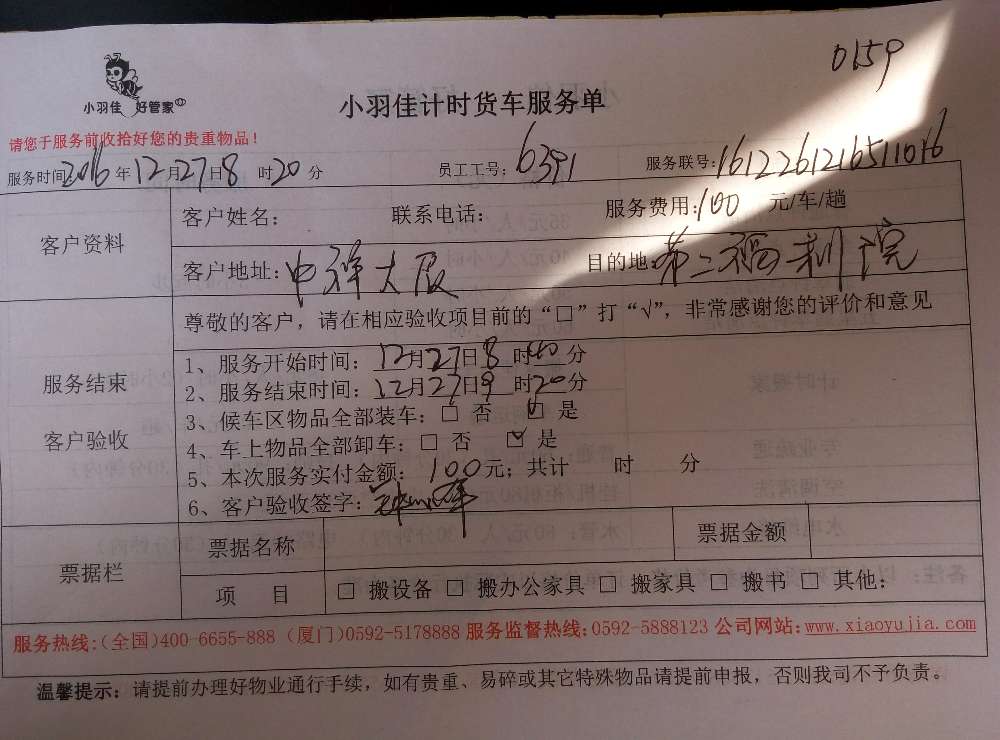 0159
小羽佳 好管家
小羽佳计时货车服务单
请您于服务前收拾好您的贵重物品！
服务时间2016年12月27日8时20分 员工工号：6391 服务联号：1612261216511016
客户资料
客户姓名： 联系电话： 服务费用：100 元/车/趟
客户地址：中祥大厦 目的地：第二福利院
服务结束
客户验收
尊敬的客户，请在相应验收项目前的“□”打“√”，非常感谢您的评价和意见
1、服务开始时间：12月27日8时40分
2、服务结束时间：12月27日9时20分
3、候车区物品全部装车：□ 否 ☑ 是
4、车上物品全部卸车：□ 否 ☑ 是
5、本次服务实付金额：100元；共计 时 分
6、客户验收签字：
票据栏
票据名称 票据金额
项 目 □ 搬设备 □ 搬办公家具 □ 搬家具 □ 搬书 □ 其他：
服务热线：(全国)400-6655-888 (厦门)0592-5178888 服务监督热线：0592-5888123 公司网站：www.xiaoyujia.com
温馨提示：请提前办理好物业通行手续，如有贵重、易碎或其它特殊物品请提前申报，否则我司不予负责。